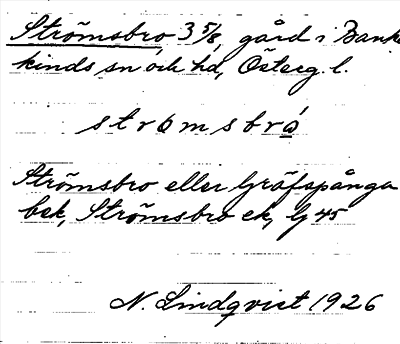 Strömsbro 3 5/8, gård i Banke-
kinds sn och hd, Österg. l.
strömsbrò
Strömsbro eller Gräfspånga
bek, Strömsbro ek, Lg 45
N. Lindqvist 1926